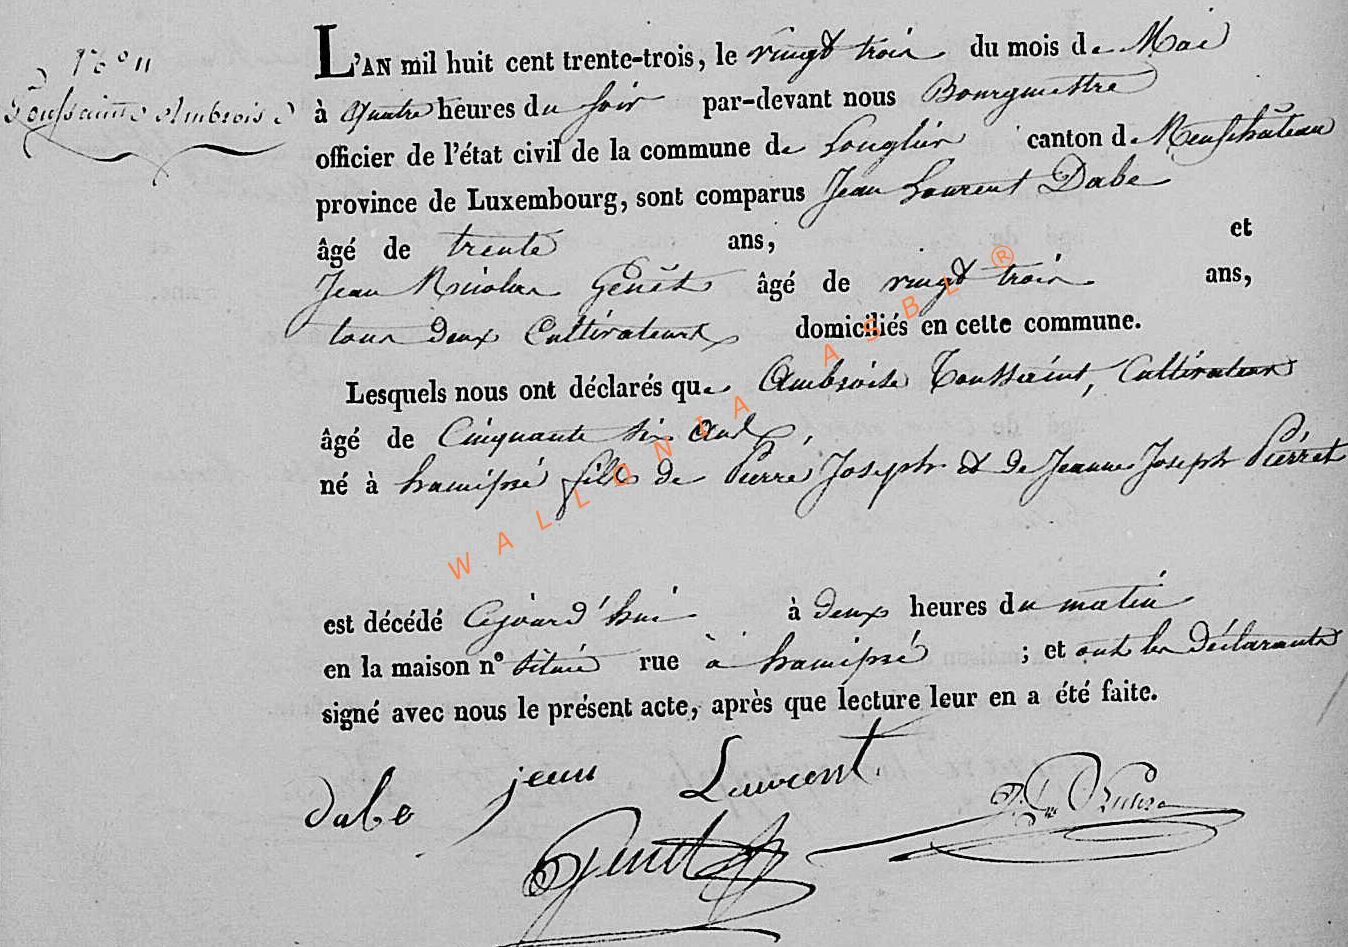 Nº 11
Toussaint Ambroise
L'AN mil huit cent trente-trois, le vingt trois du mois de Mai
à quatre heures du soir par-devant nous Bourgmestre
officier de l'état civil de la commune de Longlier canton de Neufchâteau
province de Luxembourg, sont comparus Jean Laurent Dabe
âgé de trente ans, et
Jean Nicolas Genêt âgé de vingt trois ans,
tous deux Cultivateurs domiciliés en cette commune.
Lesquels nous ont déclarés que Ambroise Toussaint, Cultivateur
âgé de Cinquante six ans,
né à hamipré fils de Pierre Joseph et de Jeanne Joseph Piérret
est décédé Cejourd'hui à deux heures du matin
en la maison nº située rue à hamipré ; et ont les déclarants
signé avec nous le présent acte, après que lecture leur en a été faite.
dabe jean Laurent
Genett
WALLONIA ASBL ®